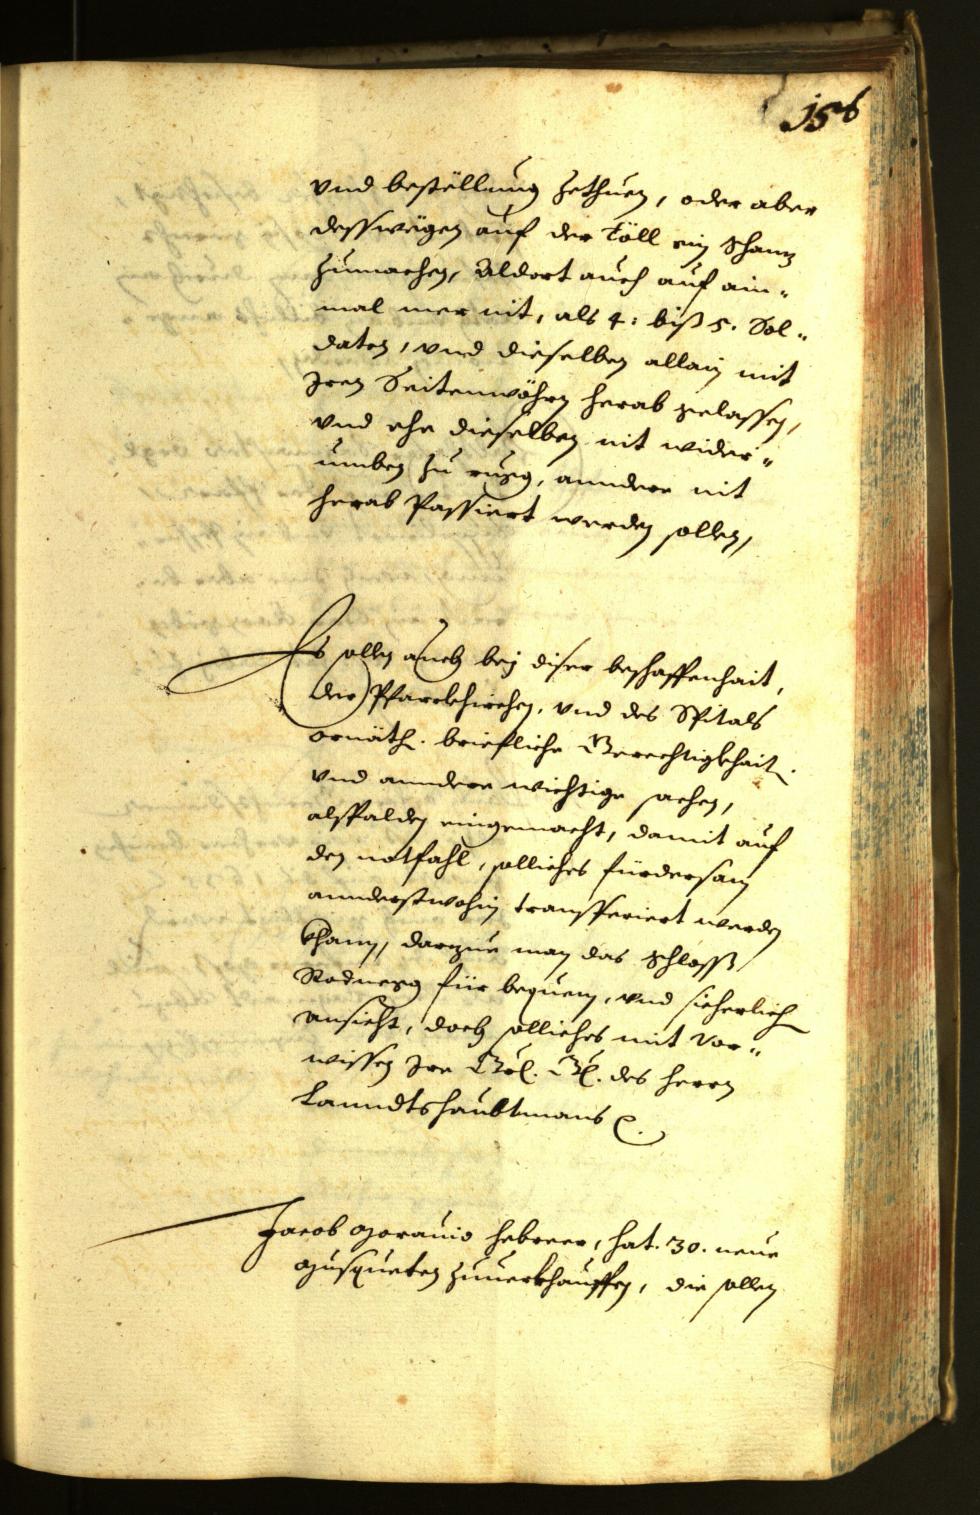 156
vnd bestëllung zethuen, oder aber
desswëgen auf der Töll ein Schanz
zumachen, Aldort auch auf ain„
mal mer nit, als 4: biß 5. Sol„
daten, vnd dieselben allain mit
Jren Seitenwöhrn herab gelassen,
vnd ehe dieselben nit wider„
umben zu rugg, anndere nit
herab Passiert werden sollen,
Es sollen auch bey diser beschaffenhait,
der Pfarrkhirchen, vnd des Spitals
ornäth. briefliche Gerechtigkhait.
vnd anndere wichtige sachen,
alßpalden eingemacht, damit auf
den notfahl, solliches fürdersam
annderstwohin transpferiert werden
khann, darzue man das Schloss
Rodnegg für bequem, vnd sicherlich
ansicht, doch solliches mit Vor„
wissen Jrer Gräf. G. des herrn
Lanndtshaubtmans
Jacob Moravio hebreer, hat. 30. neue
Musqueten zuuerkhauffen, die sollen